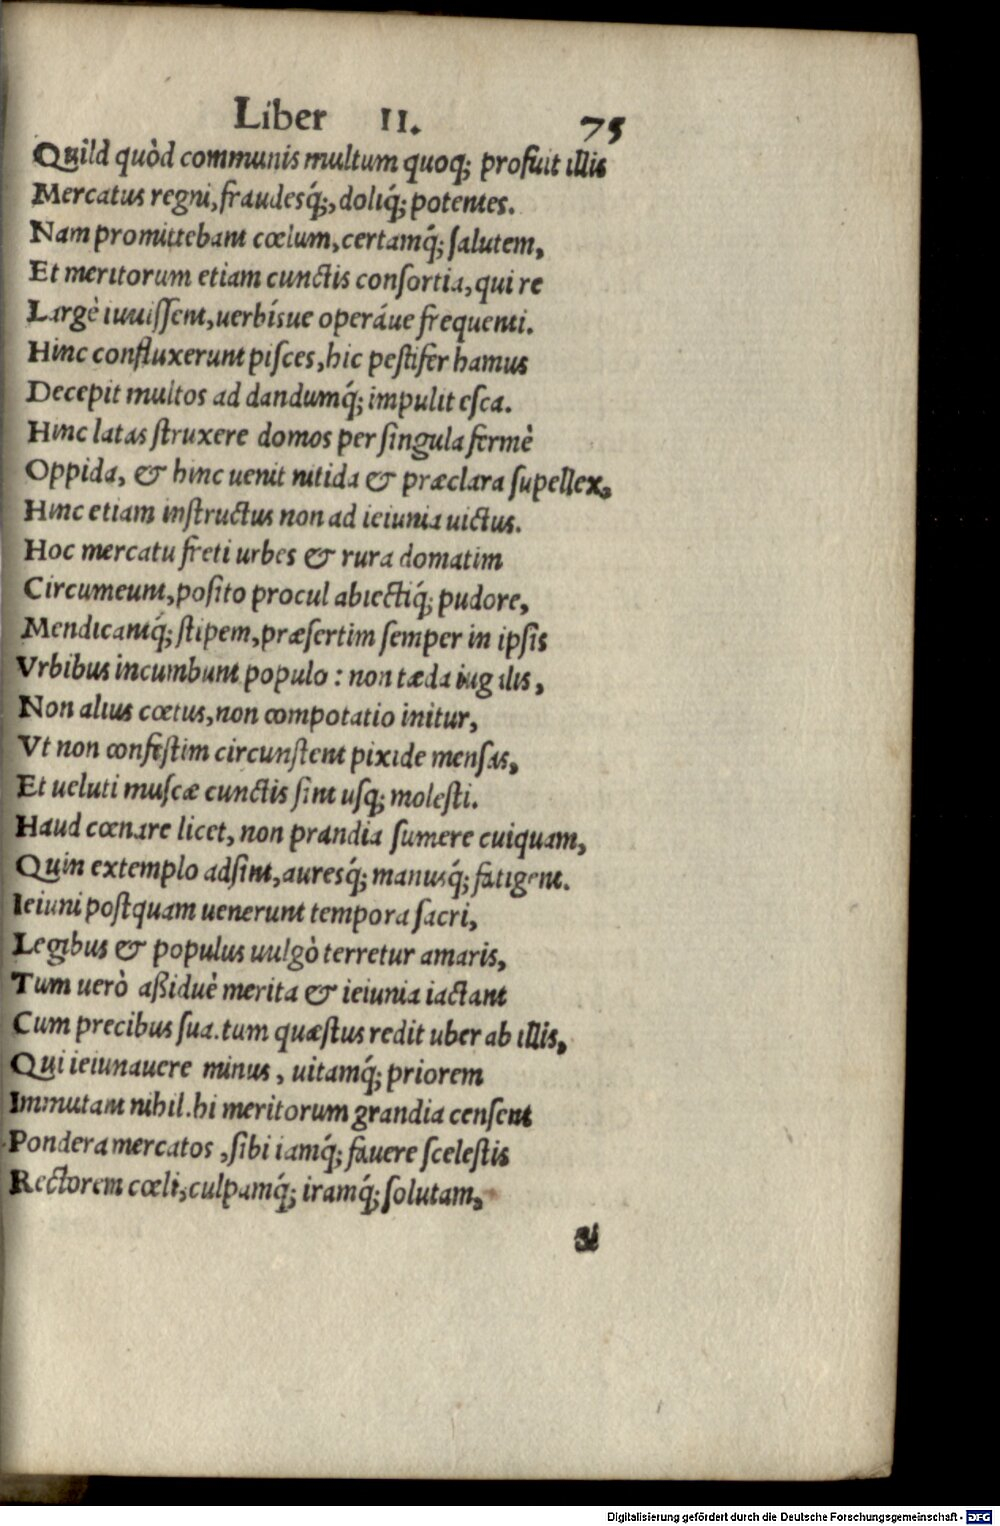 Liber II. 75
Quild quòd communis multum quoq; profuit illis
Mercatus regni, fraudesq́;, doliq́; potentes.
Nam promittebant cœlum, certamq́; ſalutem,
Et meritorum etiam cunctis conſortia, qui re
Largè iuuiſſent, uerbísue operáue frequenti.
Hinc confluxerunt piſces, hic peſtifer hamus
Decepit multos ad dandumq́; impulit eſca.
Hinc latas ſtruxere domos per ſingula fermè
Oppida, & hinc uenit nitida & præclara ſupellex,
Hinc etiam inſtructus non ad ieiunia uictus.
Hoc mercatu freti urbes & rura domatim
Circumeunt, poſito procul abiectiq́; pudore,
Mendicantq́; ſtipem, præſertim ſemper in ipſis
Vrbibus incumbunt populo: non tæda iugalis,
Non alius cœtus, non compotatio initur,
Vt non confeſtim circunſtent pixide menſas,
Et ueluti muſcæ cunctis ſint uſq; moleſti.
Haud cœnare licet, non prandia ſumere cuiquam,
Quin extemplo adſint, auresq́; manusq́; fatigent.
Ieiuni poſtquam uenerunt tempora ſacri,
Legibus & populus uulgò terretur amaris,
Tum uerò aßiduè merita & ieiunia iactant
Cum precibus ſua. tum quæſtus redit uber ab illis,
Qui ieiunauere minus, uitamq́; priorem
Immutant nihil. hi meritorum grandia cenſent
Pondera mercatos, ſibi iamq́; fauere ſceleſtis
Rectorem cœli, culpamq́; iramq́; ſolutam,
Digitalisierung gefördert durch die Deutsche Forschungsgemeinschaft - DFG